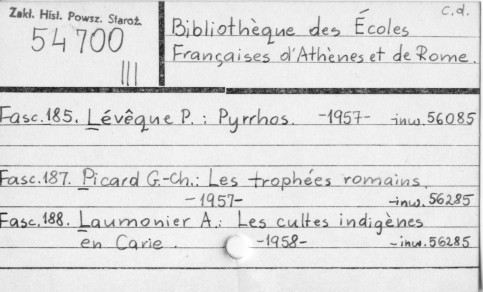 Zakł. Hist. Powsz. Staroż.
c.d.
54700
III
Bibliothèque des Écoles
Françaises d'Athènes et de Rome.
Fasc.185. Lévêque P.: Pyrrhos. -1957- inw.56085
Fasc.187. Picard G.-Ch.: Les trophées romains.
-1957- -inw.56285
Fasc.188. Laumonier A.: Les cultes indigènes
en Carie. -1958- -inw.56285